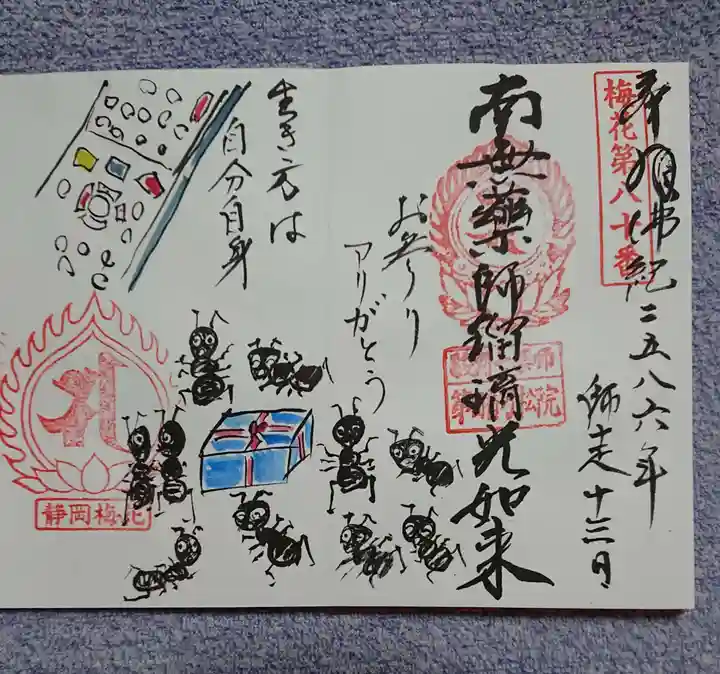 梅花第八十番
奉拝 佛紀二五八六年
師走十三日
南無薬師瑠璃光如来
お参り
アリがとう
生き方は
自分自身
静岡梅花